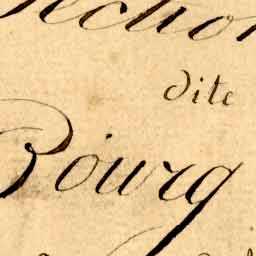 ection
dite
Bourg